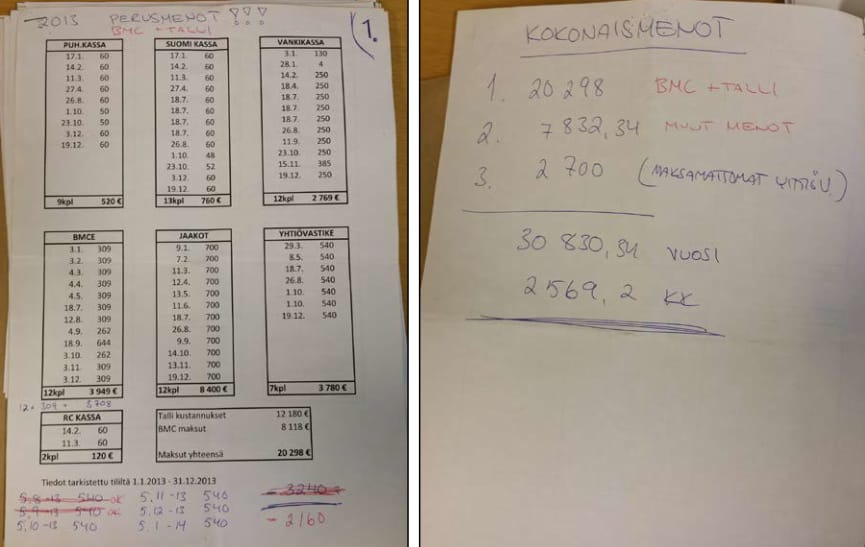 2013 PERUSMENOT !!!
BMC + TALLI
1.
PUH.KASSA
17.1. 60
14.2. 60
11.3. 60
27.4. 60
26.8. 60
1.10. 50
23.10. 50
3.12. 60
19.12. 60
9kpl 520 €
SUOMI KASSA
17.1. 60
14.2. 60
11.3. 60
27.4. 60
18.7. 60
18.7. 60
18.7. 60
18.7. 60
26.8. 60
1.10. 48
23.10. 52
3.12. 60
19.12. 60
13kpl 760 €
VANKIKASSA
3.1. 130
28.1. 4
14.2. 250
18.4. 250
18.7. 250
18.7. 250
18.7. 250
26.8. 250
11.9. 250
23.10. 250
15.11. 385
19.12. 250
12kpl 2 769 €
BMCE
3.1. 309
3.2. 309
4.3. 309
4.4. 309
4.5. 309
18.7. 309
12.8. 309
4.9. 262
18.9. 644
3.10. 262
3.11. 309
3.12. 309
12kpl 3 949 €
12 × 309 = 3708
JAAKOT
9.1. 700
7.2. 700
11.3. 700
12.4. 700
13.5. 700
11.6. 700
18.7. 700
26.8. 700
9.9. 700
14.10. 700
13.11. 700
19.12. 700
12kpl 8 400 €
YHTIÖVASTIKE
29.3. 540
8.5. 540
18.7. 540
26.8. 540
1.10. 540
1.10. 540
19.12. 540
7kpl 3 780 €
RC KASSA
14.2. 60
11.3. 60
2kpl 120 €
Talli kustannukset 12 180 €
BMC maksut 8 118 €
Maksut yhteensä 20 298 €
Tiedot tarkistettu tililtä 1.1.2013 - 31.12.2013
5.8-13 540 OK
5.9-13 540 OK
5.10-13 540
5.11-13 540
5.12-13 540
5.1-14 540
- 3240
- 2160
KOKONAISMENOT
1. 20 298 BMC + TALLI
2. 7 832,34 MUUT MENOT
3. 2 700 (MAKSAMATTOMAT
30 830,34 VUOSI
2569,2 KK